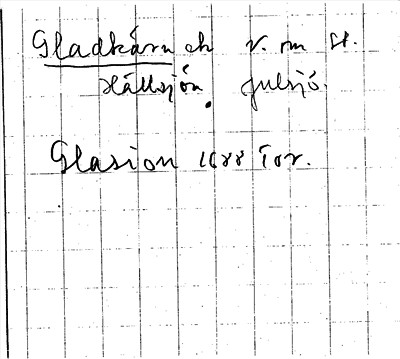 Gladkärn ek v. om St.
Hällsjön. Julsjö.
Glasion 1688 Tor.